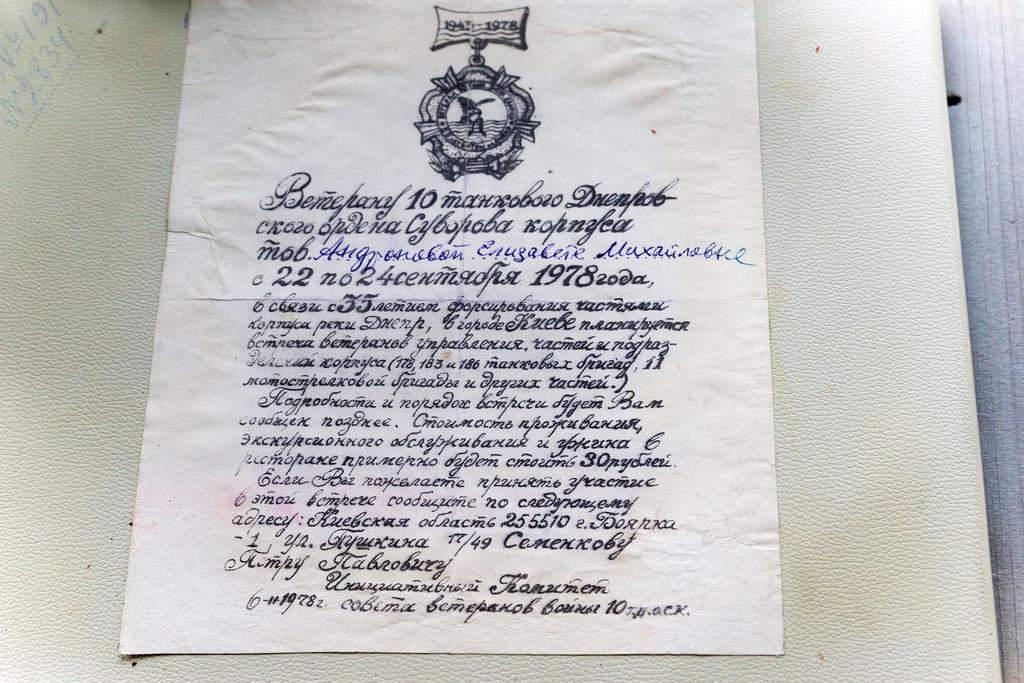 №191
№2834
1943-1978
Ветерану 10 танкового Днепров-
ского ордена Суворова корпуса
тов. Андроновой Елизавете Михайловне
с 22 по 24 сентября 1978 года,
в связи с 35 летием форсирования частями
корпуса реки Днепр, в городе Киеве планируется
встреча ветеранов управления, частей и подраз-
делений корпуса (178, 183 и 186 танковых бригад, 11
мотострелковой бригады и других частей.)
Подробности и порядок встречи будет Вам
сообщен позднее. Стоимость проживания,
экскурсионного обслуживания и ужина в
ресторане примерно будет стоить 30 рублей.
Если Вы пожелаете принять участие
в этой встрече сообщите по следующему
адресу: Киевская область 255510 г. Боярка
-1, ул. Пушкина 17/49 Семенкову
Петру Павловичу
Инициативный Комитет
6-II-1978г. совета ветеранов войны 10 т.д.о.с.к.